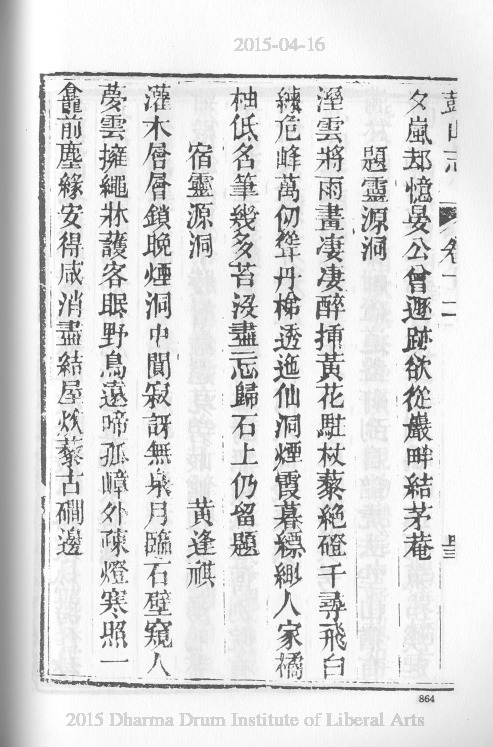 2015-04-16
鼓山志 卷十二
夕嵐却憶晏公曾遯跡欲從巖畔結茅菴
題靈源洞
溼雲將雨晝凄凄醉揷黃花駐杖藜絶磴千尋飛白
練危峰萬仞聳丹梯逶迤仙洞煙霞暮縹緲人家橘
柚低名筆幾多苔沒盡忘歸石上仍留題
宿靈源洞 黃逢祺
灌木層層鎖晚煙洞中閴寂訝無泉月臨石壁窺人
夢雲擁繩牀護客眠野鳥遠啼孤嶂外疎燈寒照一
龕前塵緣安得咸消盡結屋炊藜古磵邊
864
2015 Dharma Drum Institute of Liberal Arts